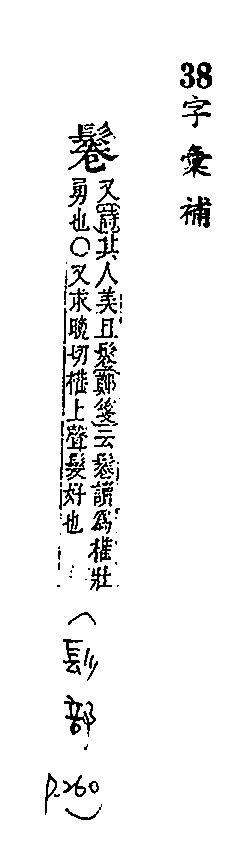 38字彙補
鬈又詩其人美且鬈鄭箋云鬈讀為權壯
勇也〇又求晚切權上聲髮好也
(髟部 p.260)